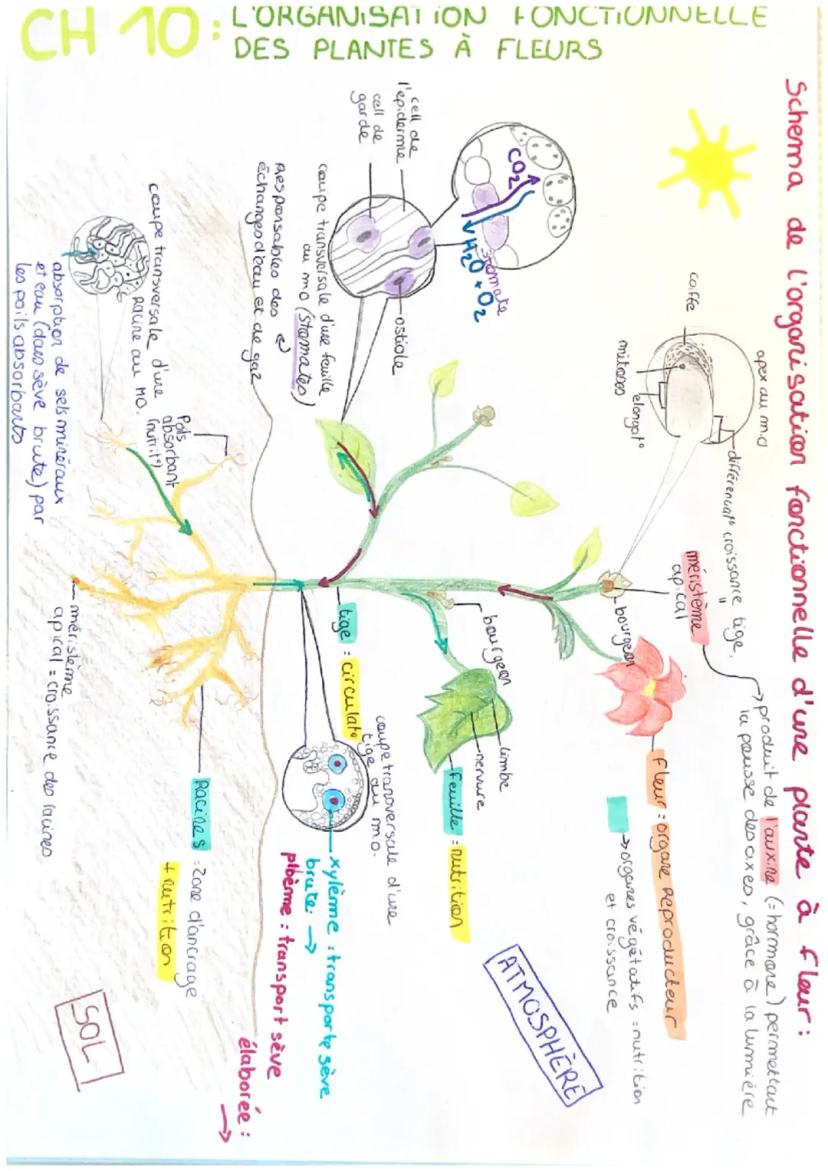 CH 10 : L'ORGANISATION FONCTIONNELLE
DES PLANTES À FLEURS
Schema de l'organisation fonctionnelle d'une plante à fleur :
apex au m.o
coiffe
mitoses
elongat°
différenciat° croissance tige.
méristème
apical
produit de l'auxine (= hormone) permettant
la pousse des axes, grâce à la lumière
bourgeon
Fleur : organe reproducteur
→ organes végétatifs : nutrition
et croissance
ATMOSPHÈRE
CO2
H2O + O2
stomate
cell de
l'épiderme
cell de
garde
ostiole
coupe transversale d'une feuille
au mo (stomates)
Responsables des
échanges d'eau et de gaz
bourgeon
limbe
nervure
feuille : nutrition
tige : circulat°
coupe transversale d'une
tige au m.o.
xylème : transporte sève
brute : →
phloème : transport sève
élaborée :
→
coupe transversale d'une
racine au MO.
Poils
absorbant
(nutrit°)
absorption de sels minéraux
et eau (dans sève brute) par
les poils absorbants
méristème
apical = croissance des racines
Racines : zone d'ancrage
+ nutrition
SOL